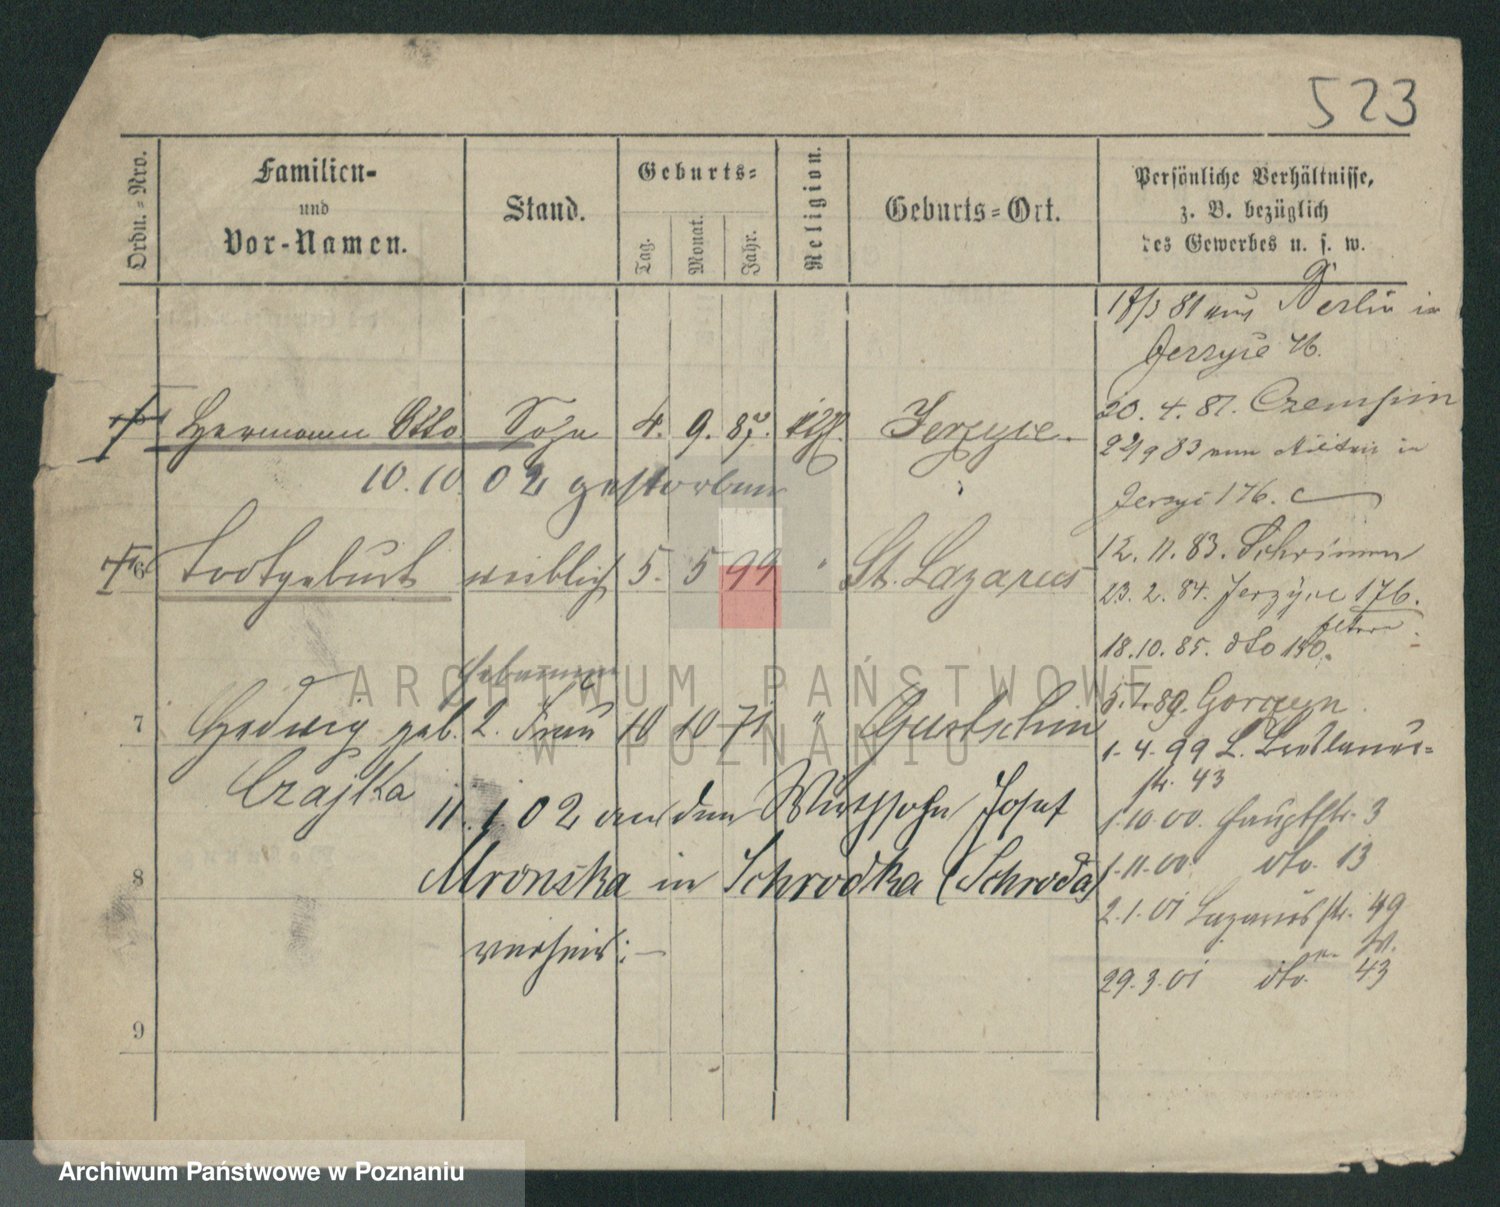 523
Ordn.-Nro.
Familien-
und
Vor-Namen.
Stand.
Geburts-
Tag.
Monat.
Jahr.
Religion.
Geburts-Ort.
Persönliche Verhältnisse,
z. B. bezüglich
des Gewerbes u. s. w.
Hermann Otto Sohn 4. 9. 87. Jerzyce.
10. 10. 02 gestorben
6 Todtgeburt weiblich 5. 5 99 " St. Lazarus
Geborene
7 Hedwig geb. 2. Frau 10 10 71 " Gurtschin
Czajka
11. 1 02 an den Wirthssohn Josef
8 Mronska in Schrodka (Schroda)
verheir:—
9
81 aus Berlin in
Jerzyce 76.
20. 4. 81. Czempin
83 vom Militär in
Jerzyce 176. c
12. 11. 83. Schrimm
23. 2. 84. Jerzyce 176.
Eltern
18. 10. 85. dto 150.
89. Gorczyn.
1. 4. 99 L.
str. 43
1. 10. 00. Hauptstr. 3
1. 11. 00. dto. 13
2. 1. 01 Lazarusstr. 49
29. 3. 01 dto. 43
ARCHIWUM PAŃSTWOWE
W POZNANIU
Archiwum Państwowe w Poznaniu